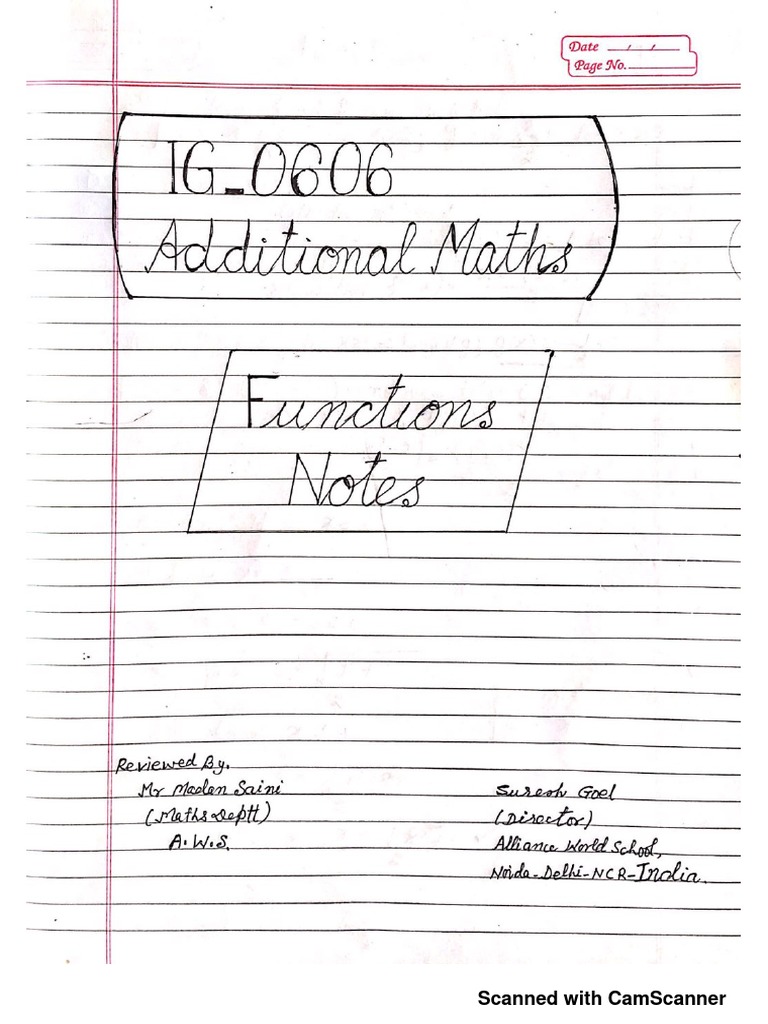 Date __/__/__
Page No.______
IG_0606
Additional Maths
Functions
Notes
Reviewed By.
Mr Madan Saini
(Maths Deptt)
A.W.S.
Suresh Goel
(Director)
Alliance World School,
Noida-Delhi-NCR-India.
Scanned with CamScanner